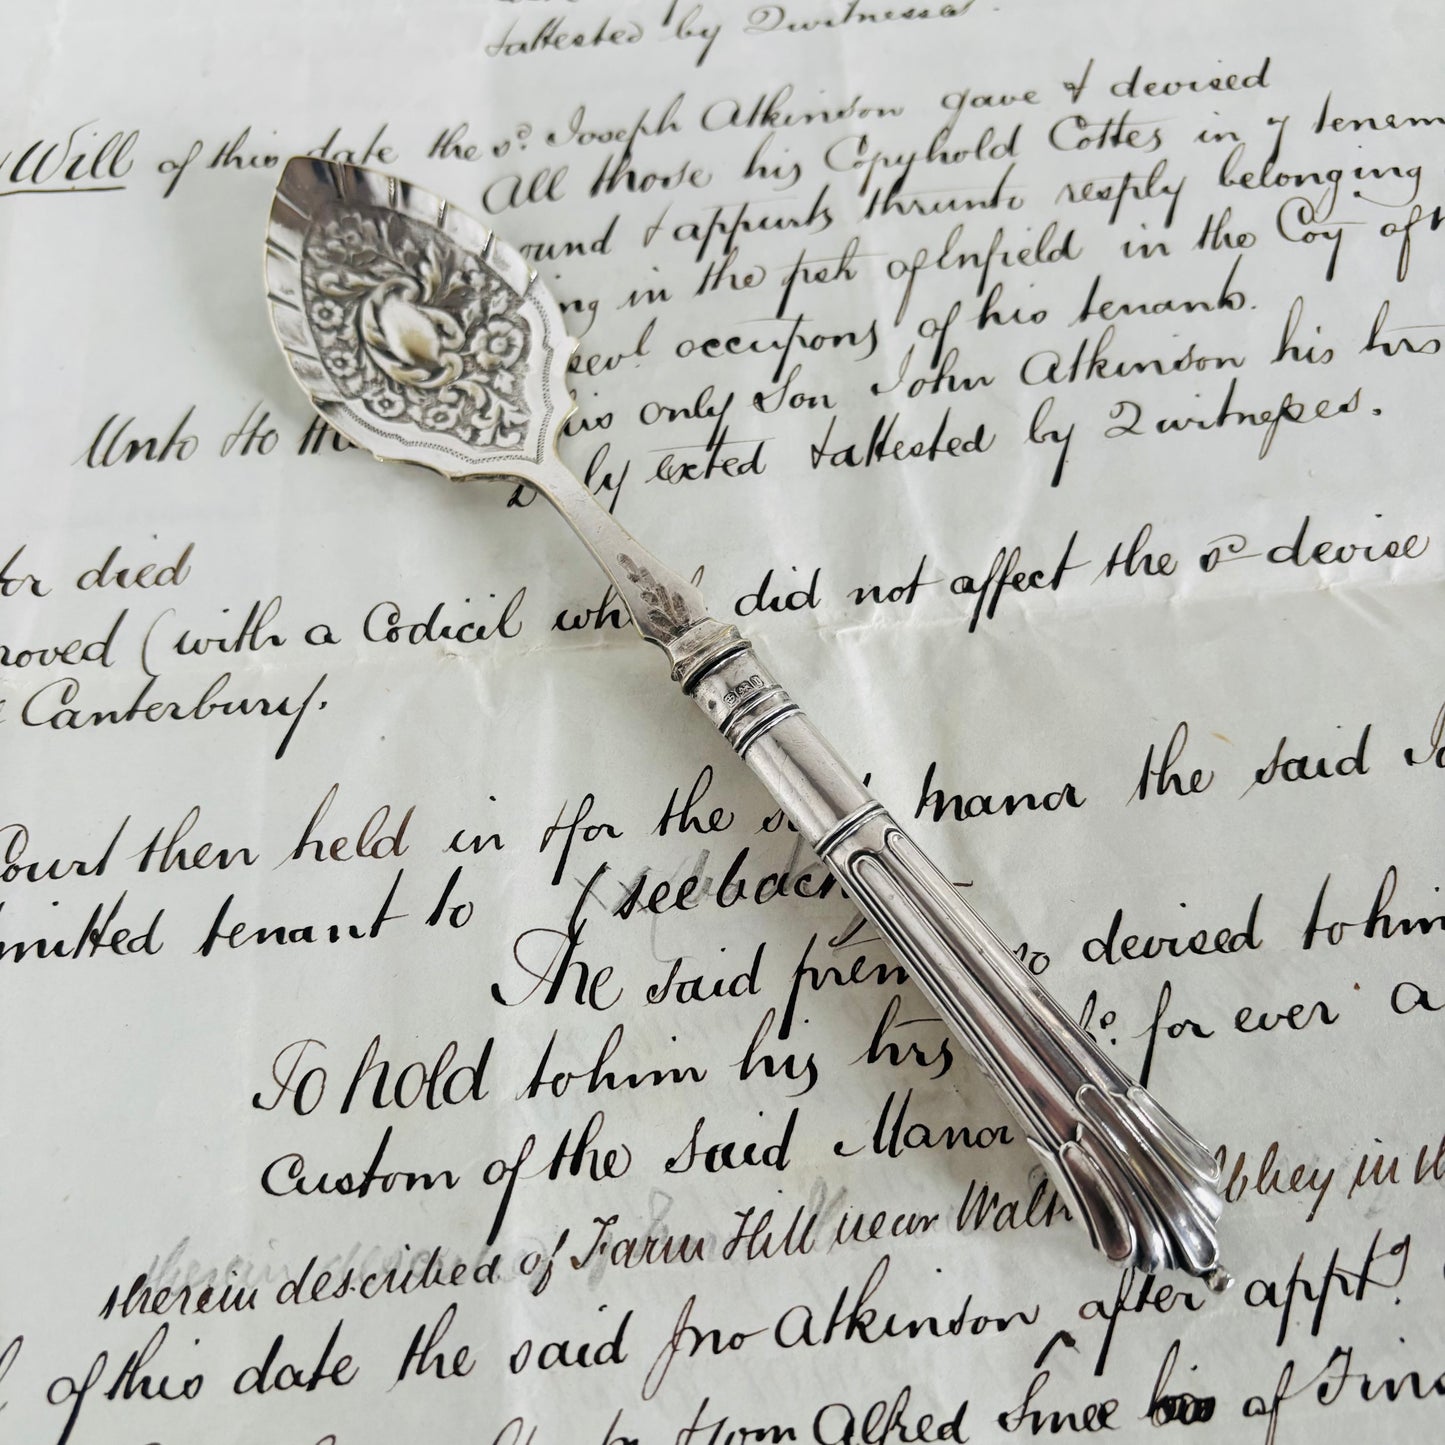 tattested by 2 witnesses.
Will of this date the sd. Joseph Atkinson gave & devised
All those his Copyhold Cottes in y tenem
ound & appurts thrunto resply belonging
ng in the psh of Enfield in the Coy of
sevl occupons of his tenants.
Unto &to the
his only Son John Atkinson his hrs
ly exted &attested by 2 witnesses.
tor died
roved (with a Codicil wh did not affect the sd devise
Canterbury.
Court then held in &for the sd manor the said Jo
mitted tenant to (see back)
The said prem so devised to him
To hold to him his hrs for ever a
Custom of the said Manor
therein described of Farm Hill near Walth Abbey in the
of this date the said Jno Atkinson after apptg
from Alfred Smee of Fins